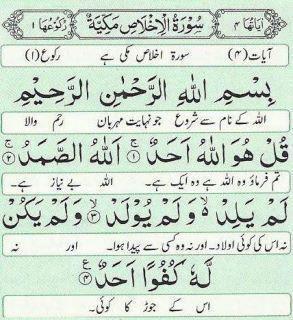 اٰیَاتُهَا ۴ سُوْرَةُ الْاِخْلَاصِ مَكِّيَّةٌ رُكُوْعُهَا ۱
آیات (۴) سورۃ اخلاص مکی ہے رکوع (۱)
بِسْمِ اللّٰهِ الرَّحْمٰنِ الرَّحِيْمِ
اللہ کے نام سے شروع جو نہایت مہربان رحم والا
قُلْ هُوَ اللّٰهُ اَحَدٌ ۚ﴿۱﴾ اَللّٰهُ الصَّمَدُ ۚ﴿۲﴾
تم فرماؤ وہ اللہ ہے وہ ایک ہے۔ اللہ بے نیاز ہے۔
لَمْ يَلِدْ ۙ وَلَمْ يُوْلَدْ ۙ﴿۳﴾ وَلَمْ يَكُنْ
نہ اس کی کوئی اولاد۔ اور نہ وہ کسی سے پیدا ہوا۔ اور نہ
لَّهٗ كُفُوًا اَحَدٌ ﴿۴﴾ ع
اس کے جوڑ کا کوئی۔